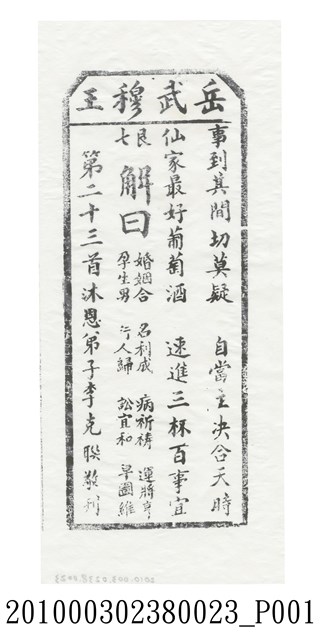 岳武穆王
事到其間切莫疑　自當主決合天時
仙家最好葡萄酒　速進三杯百事宜
艮七
解曰
婚姻合　名利成　病祈禱　運將亨
孕生男　行人歸　訟宜和　早圖維
第二十三首沐恩弟子李克聯敬刊
201000302380023_P001